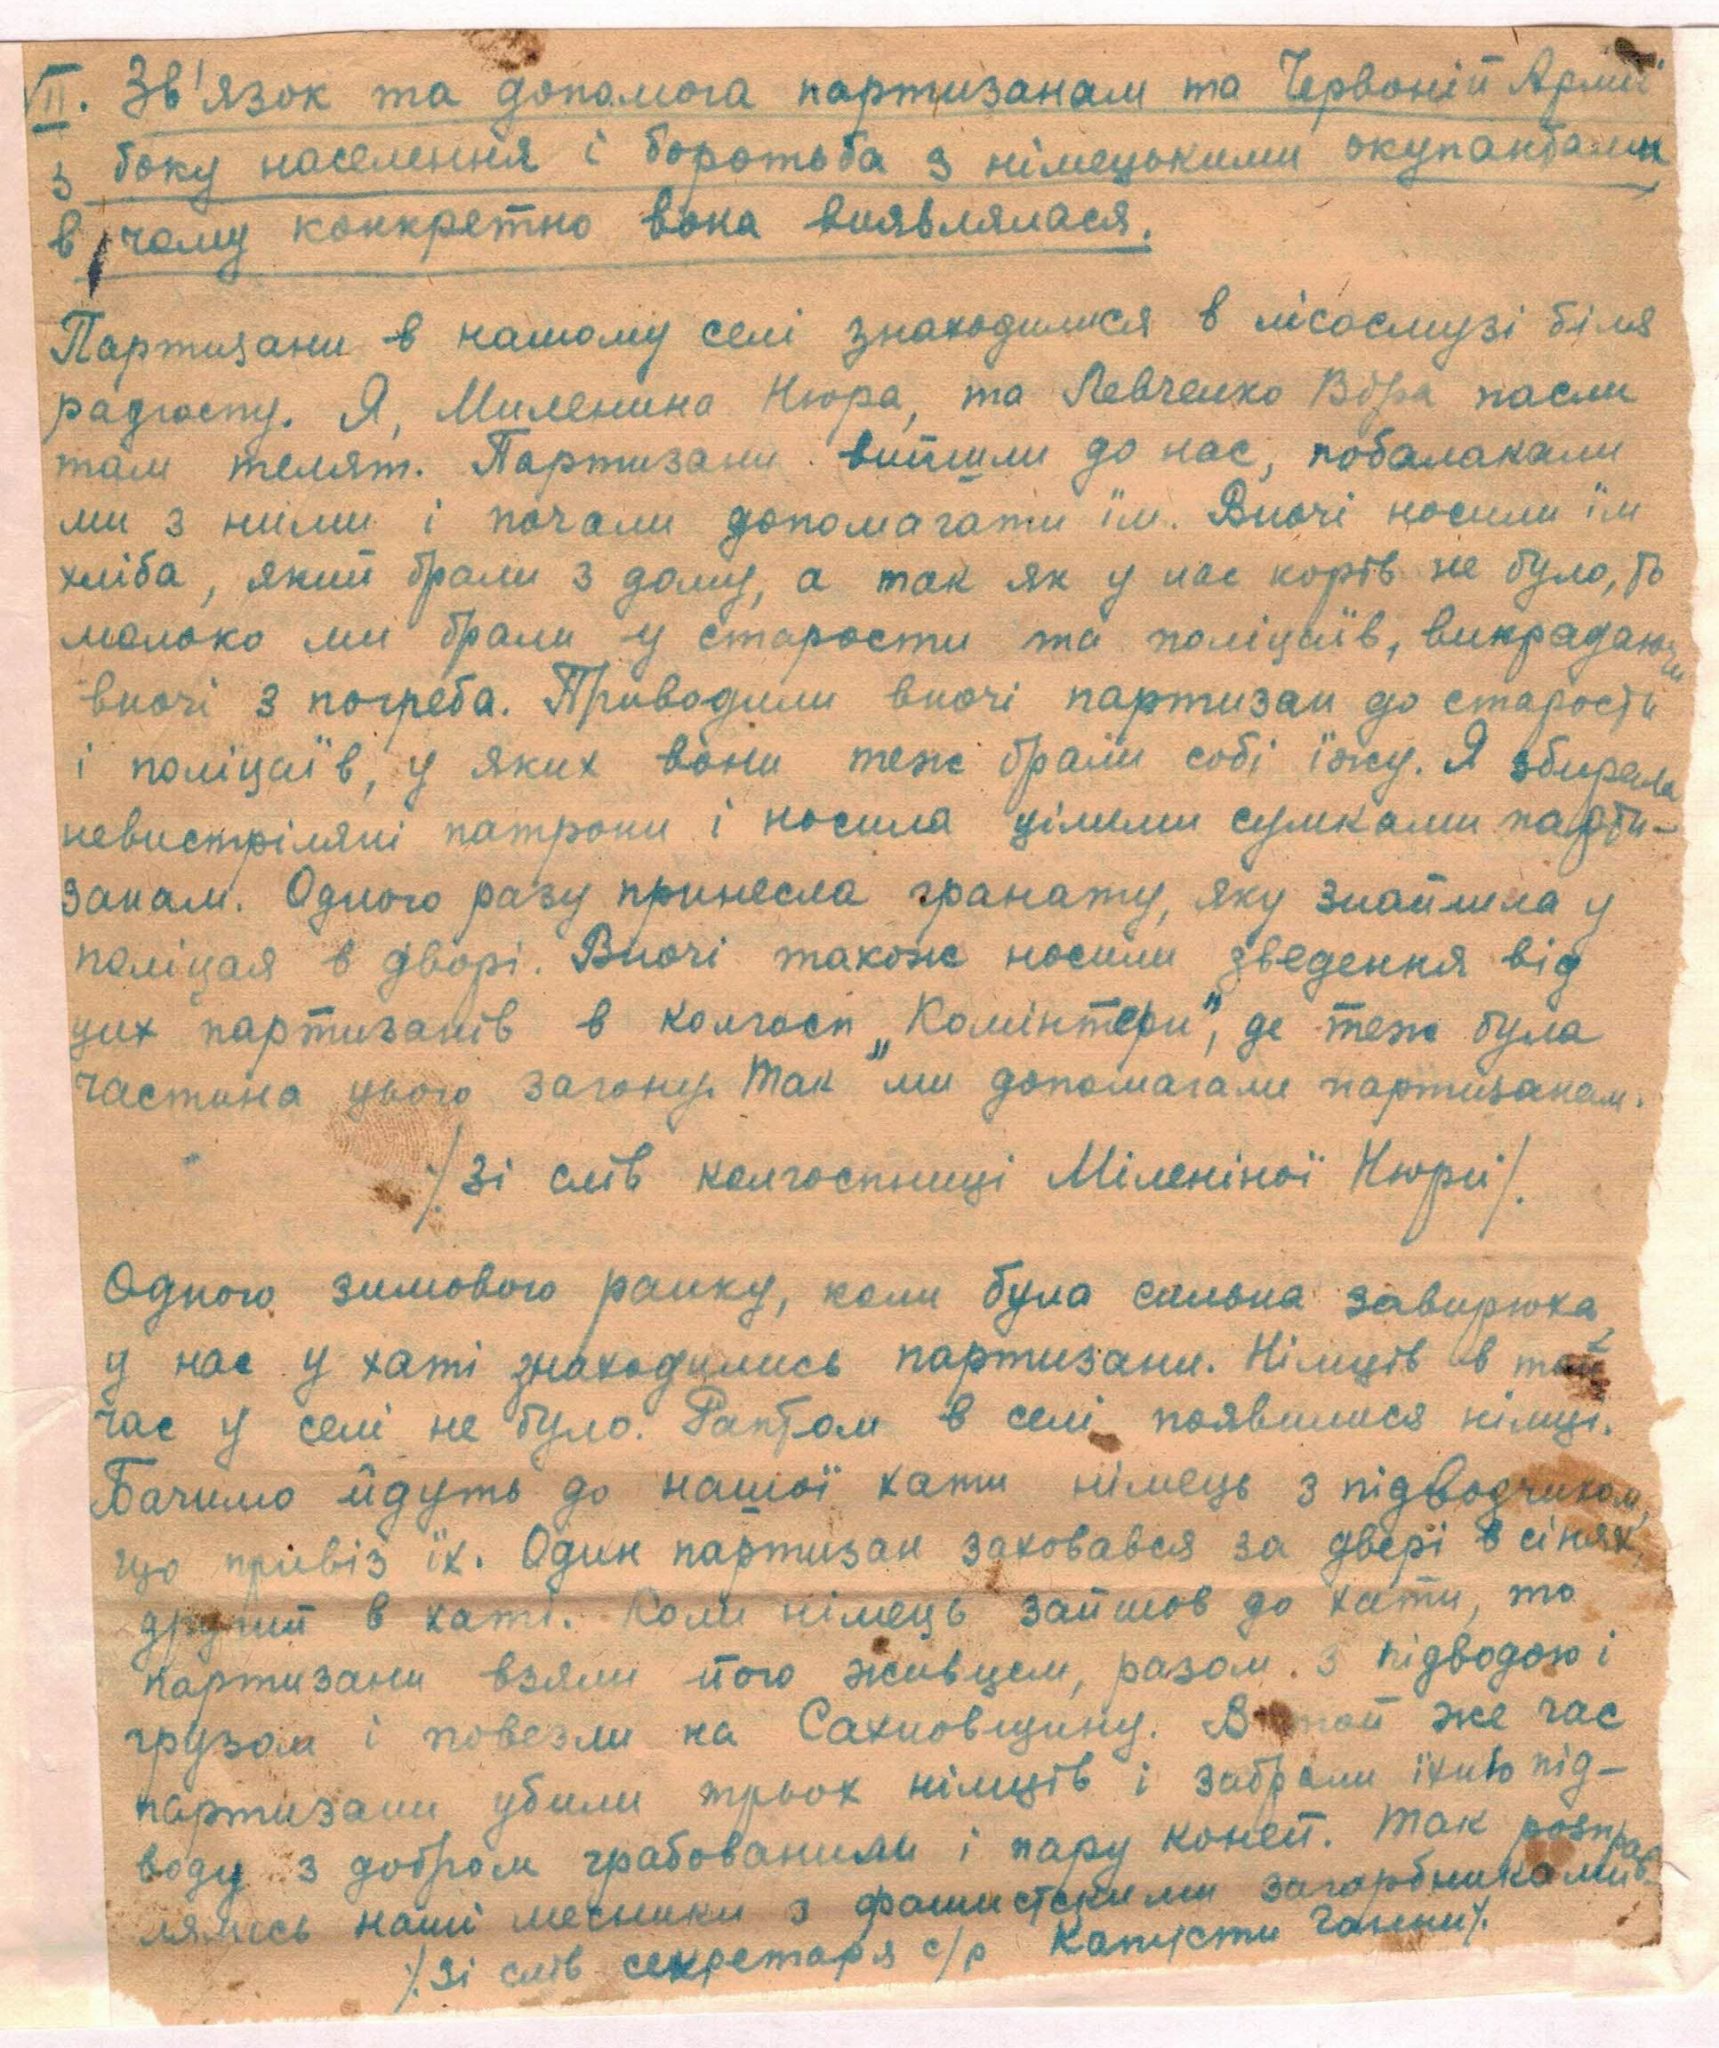 VII. Зв'язок та допомога партизанам та Червоній Армії
з боку населення і боротьба з німецькими окупантами,
в чому конкретно вона виявлялася.
Партизани в нашому селі знаходилися в лісосмузі біля
радгоспу. Я, Миленина Нюра, та Левченко Віра пасли
там телят. Партизани вийшли до нас, побалакали
ми з ними і почали допомагати їм. Вночі носили їм
хліба, який брали з дому, а так як у нас корів не було, то
молоко ми брали у старости та поліцаїв, викрадаючи
вночі з погреба. Приводили вночі партизан до старости
і поліцаїв, у яких вони теж брали собі їжу. Я збирала
невистріляні патрони і носила цілими сумками парти-
занам. Одного разу принесла гранату, яку знайшла у
поліцая в дворі. Вночі також носили зведення від
цих партизанів в колгосп „Комінтерн", де теж була
частина цього загону. Так ми допомагали партизанам.
/. Зі слів колгоспниці Міленіної Нюри/.
Одного зимового ранку, коли була сильна завирюха,
у нас у хаті знаходились партизани. Німців в той
час у селі не було. Раптом в селі появилися німці.
Бачимо йдуть до нашої хати німець з підводчиком,
що привіз їх. Один партизан заховався за двері в сінях,
другий в хаті. Коли німець зайшов до хати, то
партизани взяли його живцем, разом з підводою і
грузом і повезли на Сахновщину. В той же час
партизани убили трьох німців і забрали їхню під-
воду з добром грабованим і пару коней. Так розправ-
лялись наші месники з фашистскими загарбниками
/. Зі слів секретаря с/р Капусти Ганни/.